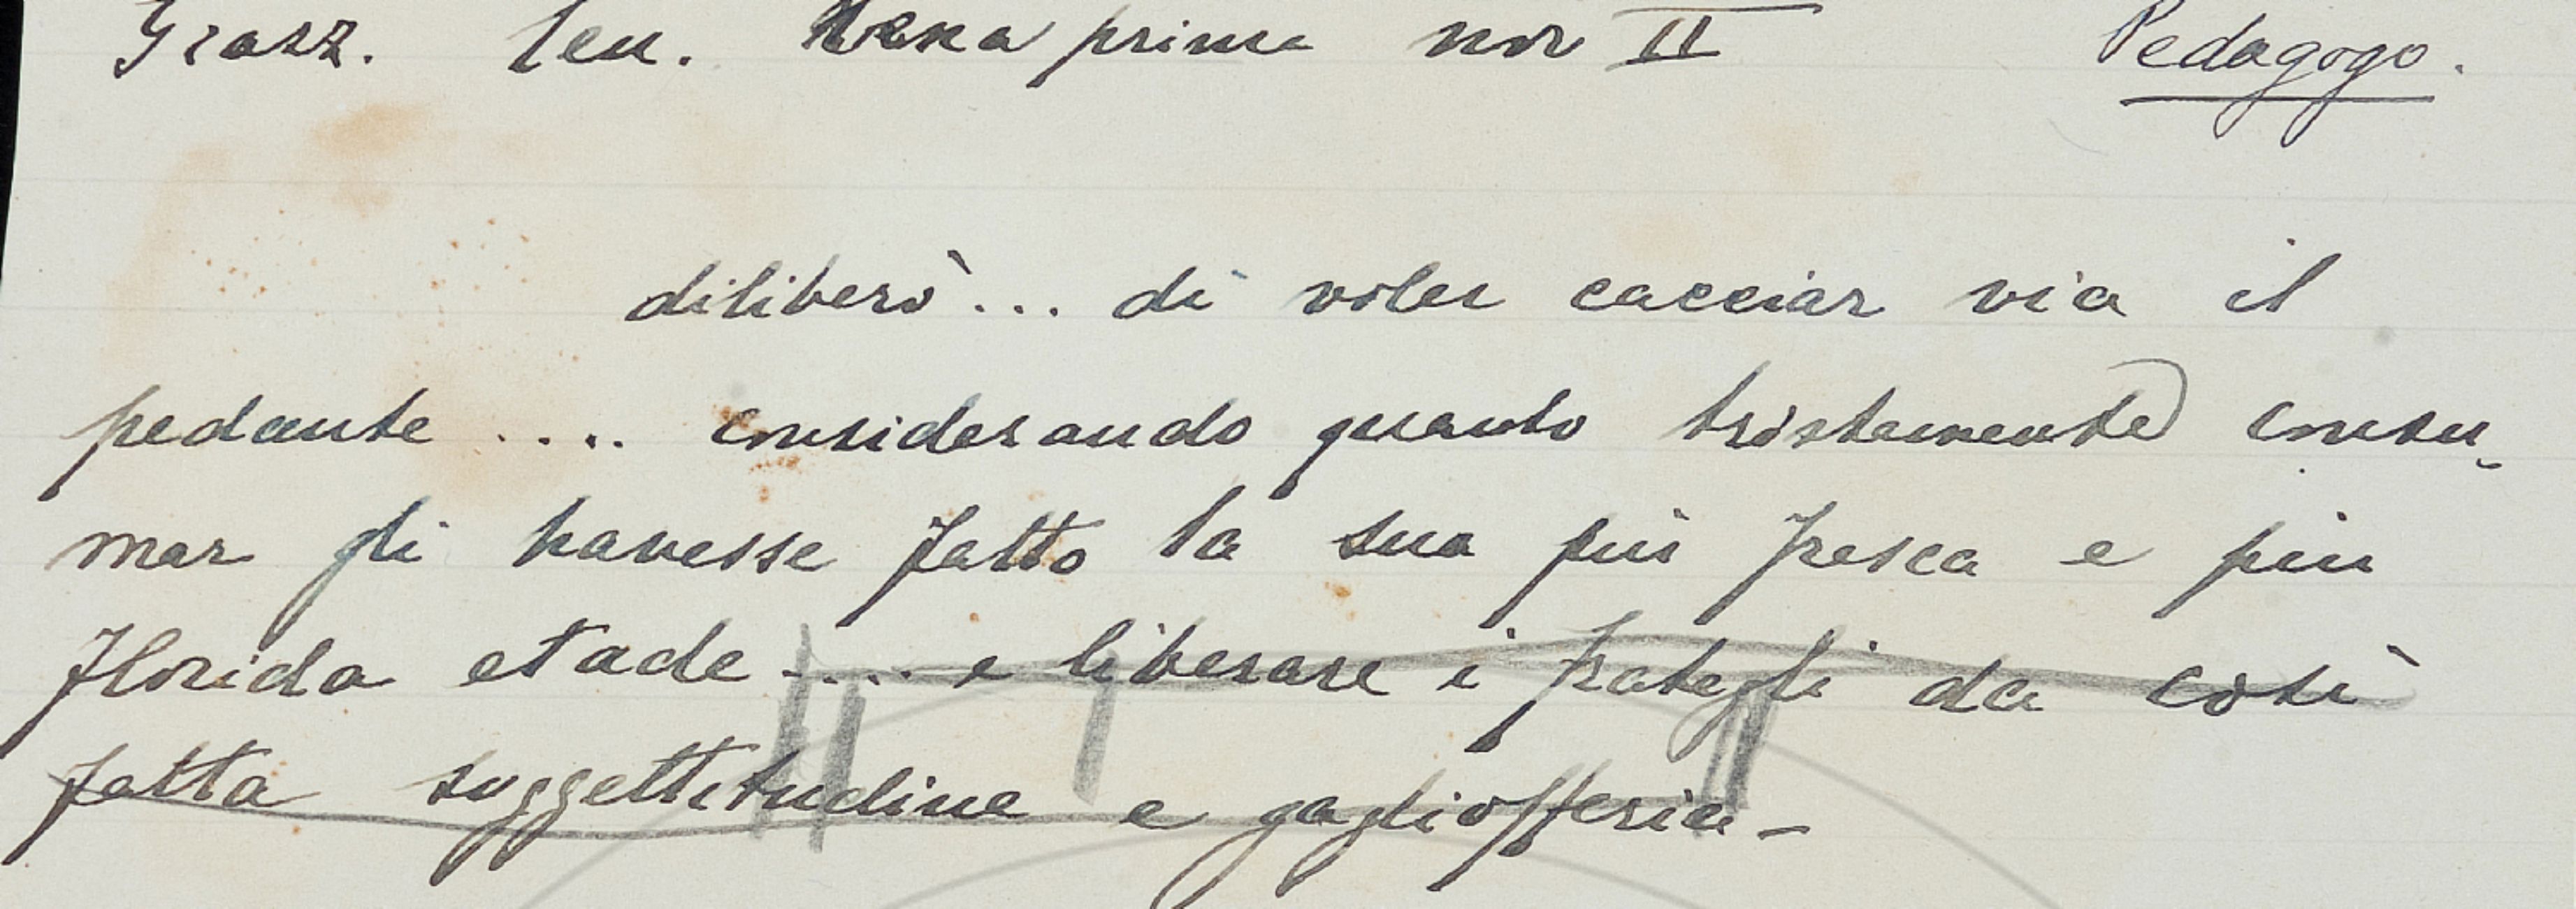 Grazz. Cen. Cena prima nov II Pedagogo.
diliberò... di voler cacciar via il
pedante .... considerando quanto tristamente consu-
mar gli havesse fatto la sua più fresca e più
florida etade .... e liberare i frategli da così
fatta suggettitudine e gagliofferia -